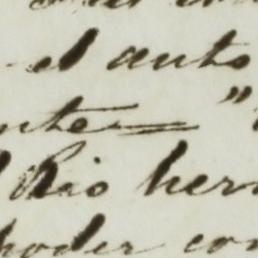 el auto
nte= "
Rio her
poder con